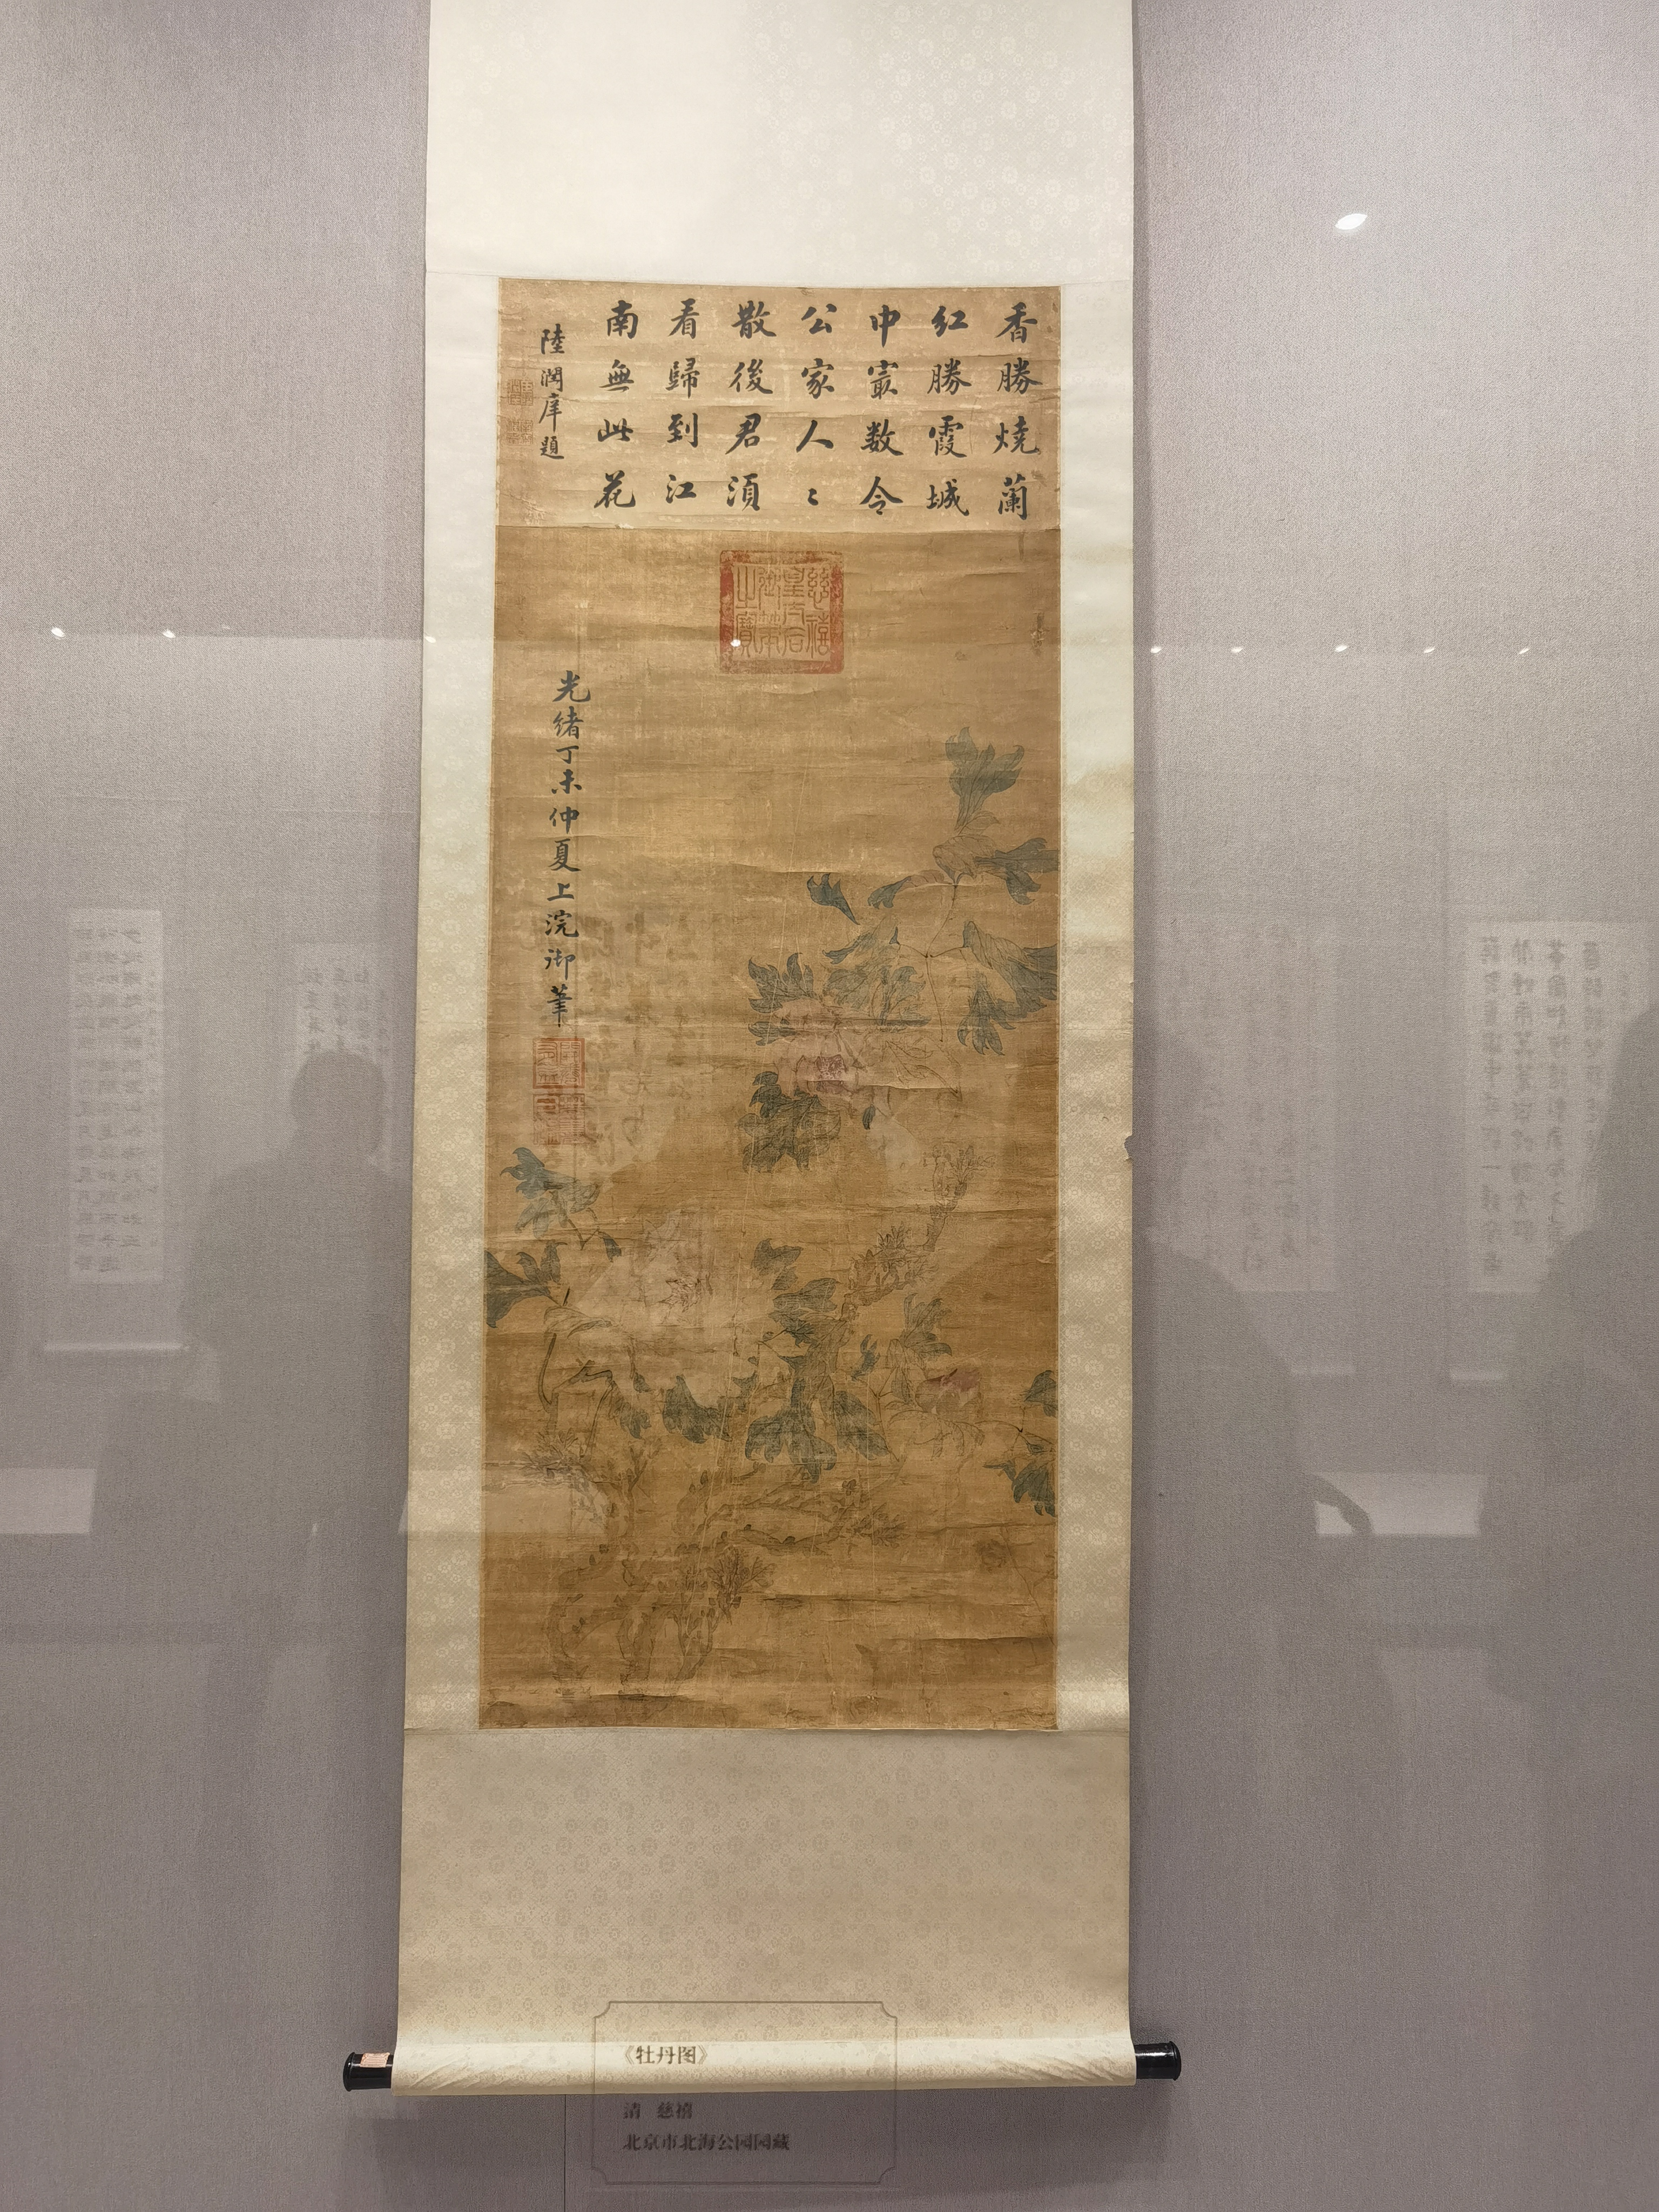 香勝燒蘭
紅勝霞城
中㝡数令
公家人〻
散後君須
看歸到江
南無此花
陸潤庠題
慈禧
皇太后
御筆
之寶
光緒丁未仲夏上浣御筆
《牡丹图》
清 慈禧
北京市北海公园园藏